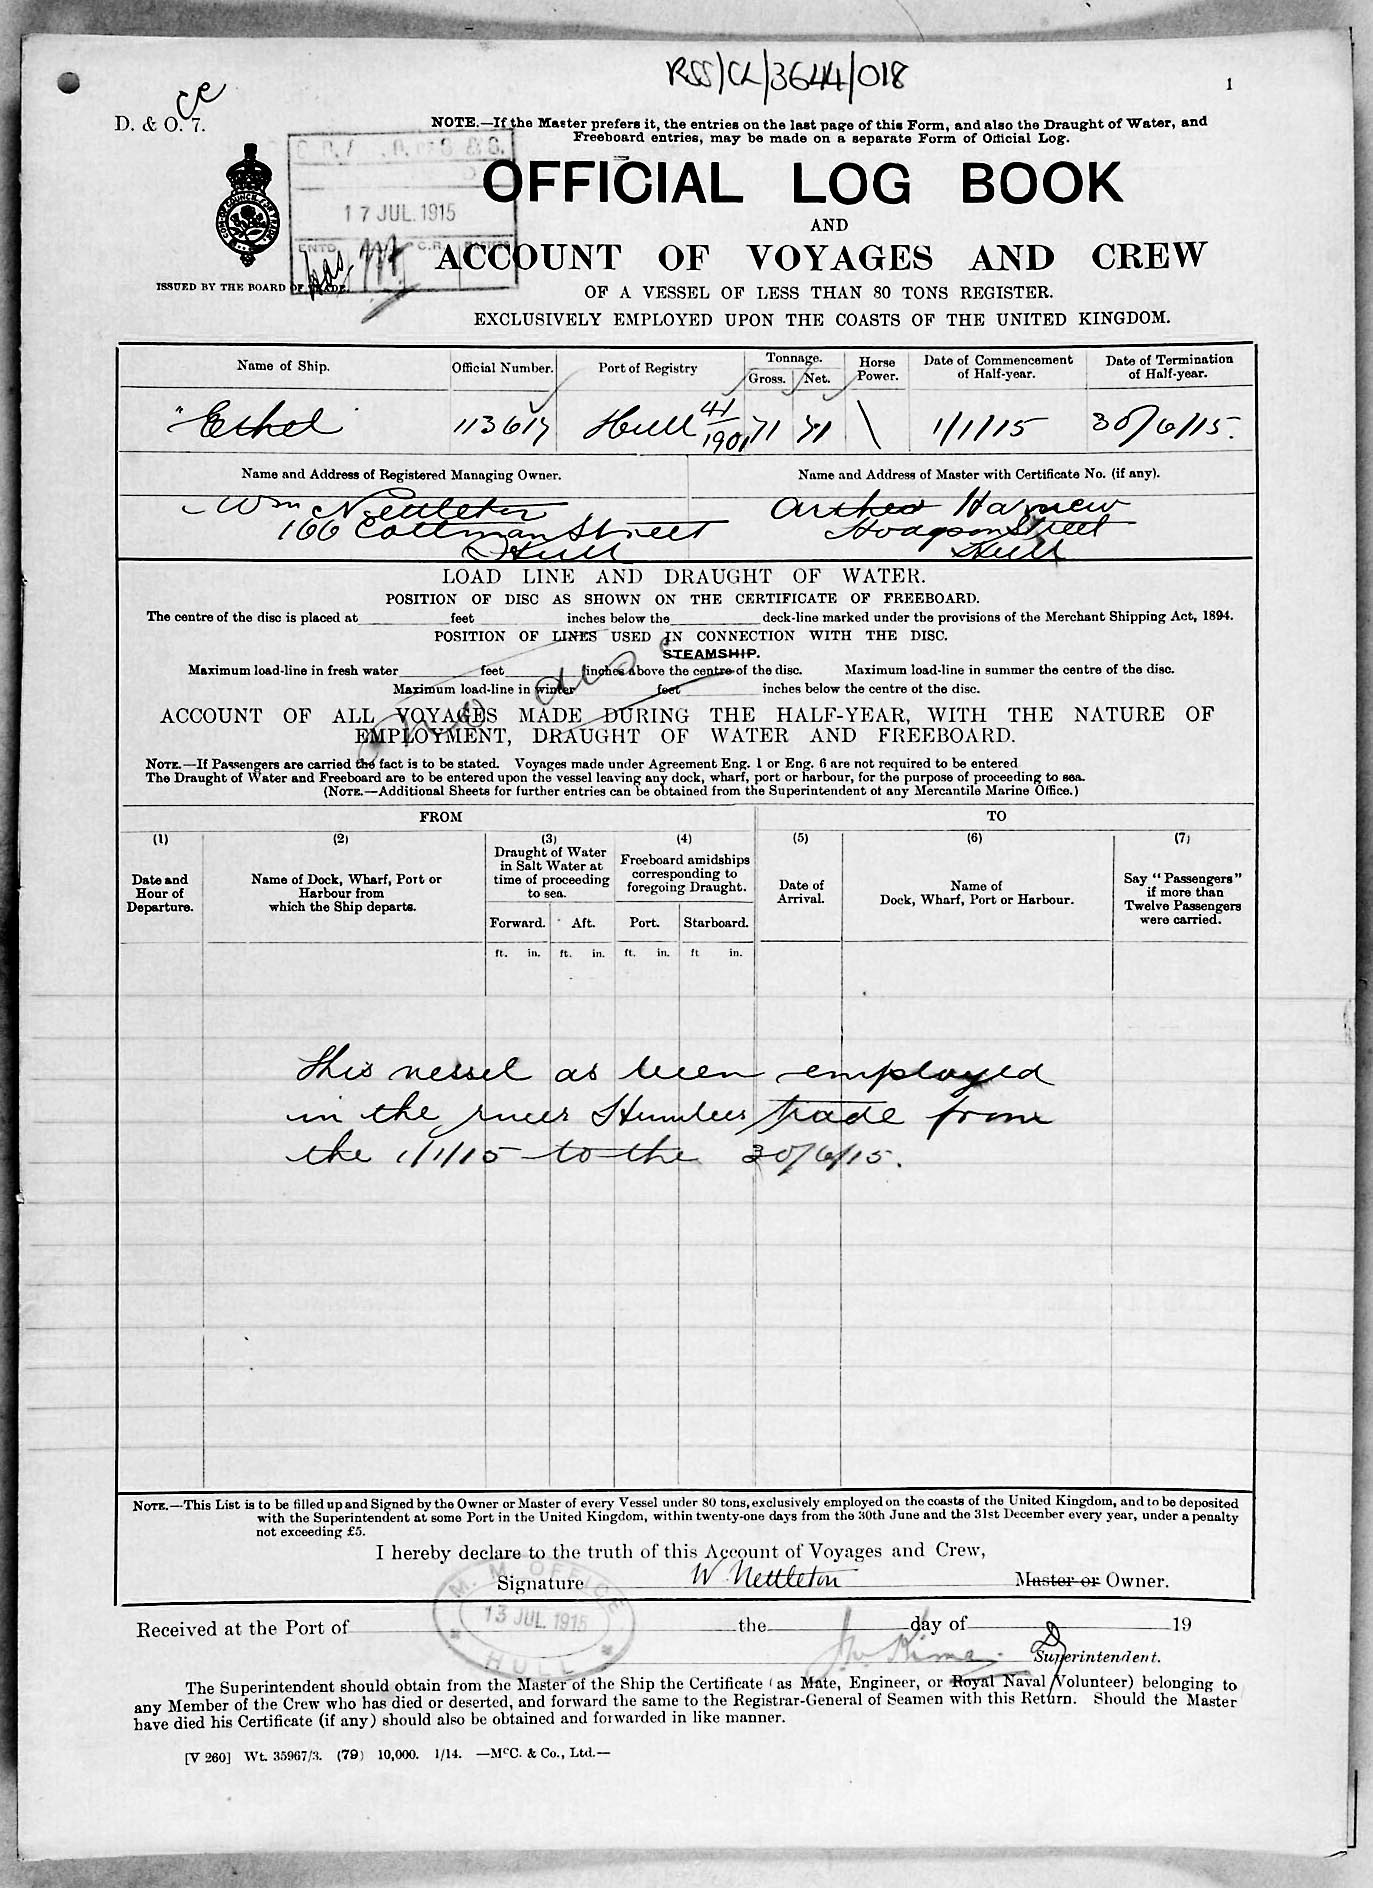 RSS/CL/3644/018
1
ce
D. & O. 7.
NOTE.—If the Master prefers it, the entries on the last page of this Form, and also the Draught of Water, and
Freeboard entries, may be made on a separate Form of Official Log.
17 JUL. 1915
ENTD. C.R.
OFFICIAL LOG BOOK
AND
ACCOUNT OF VOYAGES AND CREW
ISSUED BY THE BOARD OF TRADE.
OF A VESSEL OF LESS THAN 80 TONS REGISTER.
EXCLUSIVELY EMPLOYED UPON THE COASTS OF THE UNITED KINGDOM.
Name of Ship. Official Number. Port of Registry Tonnage. Gross. Net. Horse Power. Date of Commencement of Half-year. Date of Termination of Half-year.
"Ethel" 113617 Hull 41/1901 71 71 \ 1/1/15 30/6/15.
Name and Address of Registered Managing Owner. Name and Address of Master with Certificate No. (if any).
Wm Nettleton Harnew
166 Coltman Street Hodgson Street
Hull Hull
LOAD LINE AND DRAUGHT OF WATER.
POSITION OF DISC AS SHOWN ON THE CERTIFICATE OF FREEBOARD.
The centre of the disc is placed at feet inches below the deck-line marked under the provisions of the Merchant Shipping Act, 1894.
POSITION OF LINES USED IN CONNECTION WITH THE DISC.
STEAMSHIP.
Maximum load-line in fresh water feet inches above the centre of the disc. Maximum load-line in summer the centre of the disc.
Maximum load-line in winter feet inches below the centre of the disc.
No disc
ACCOUNT OF ALL VOYAGES MADE DURING THE HALF-YEAR, WITH THE NATURE OF
EMPLOYMENT, DRAUGHT OF WATER AND FREEBOARD.
NOTE.—If Passengers are carried the fact is to be stated. Voyages made under Agreement Eng. 1 or Eng. 6 are not required to be entered
The Draught of Water and Freeboard are to be entered upon the vessel leaving any dock, wharf, port or harbour, for the purpose of proceeding to sea.
(NOTE.—Additional Sheets for further entries can be obtained from the Superintendent of any Mercantile Marine Office.)
FROM TO
(1) (2) (3) (4) (5) (6) (7)
Date and Hour of Departure. Name of Dock, Wharf, Port or Harbour from which the Ship departs. Draught of Water in Salt Water at time of proceeding to sea. Freeboard amidships corresponding to foregoing Draught. Date of Arrival. Name of Dock, Wharf, Port or Harbour. Say "Passengers" if more than Twelve Passengers were carried.
Forward. Aft. Port. Starboard.
ft. in. ft. in. ft. in. ft in.
This vessel as been employed
in the river Humber trade from
the 1/1/15 to the 30/6/15.
NOTE.—This List is to be filled up and Signed by the Owner or Master of every Vessel under 80 tons, exclusively employed on the coasts of the United Kingdom, and to be deposited
with the Superintendent at some Port in the United Kingdom, within twenty-one days from the 30th June and the 31st December every year, under a penalty
not exceeding £5.
I hereby declare to the truth of this Account of Voyages and Crew,
Signature W. Nettleton Master or Owner.
M. M. OFFICE
13 JUL. 1915
HULL
Received at the Port of the day of 19
Superintendent.
The Superintendent should obtain from the Master of the Ship the Certificate (as Mate, Engineer, or Royal Naval Volunteer) belonging to
any Member of the Crew who has died or deserted, and forward the same to the Registrar-General of Seamen with this Return. Should the Master
have died his Certificate (if any) should also be obtained and forwarded in like manner.
[V 260] Wt. 35967/3. (79) 10,000. 1/14. —McC. & Co., Ltd.—